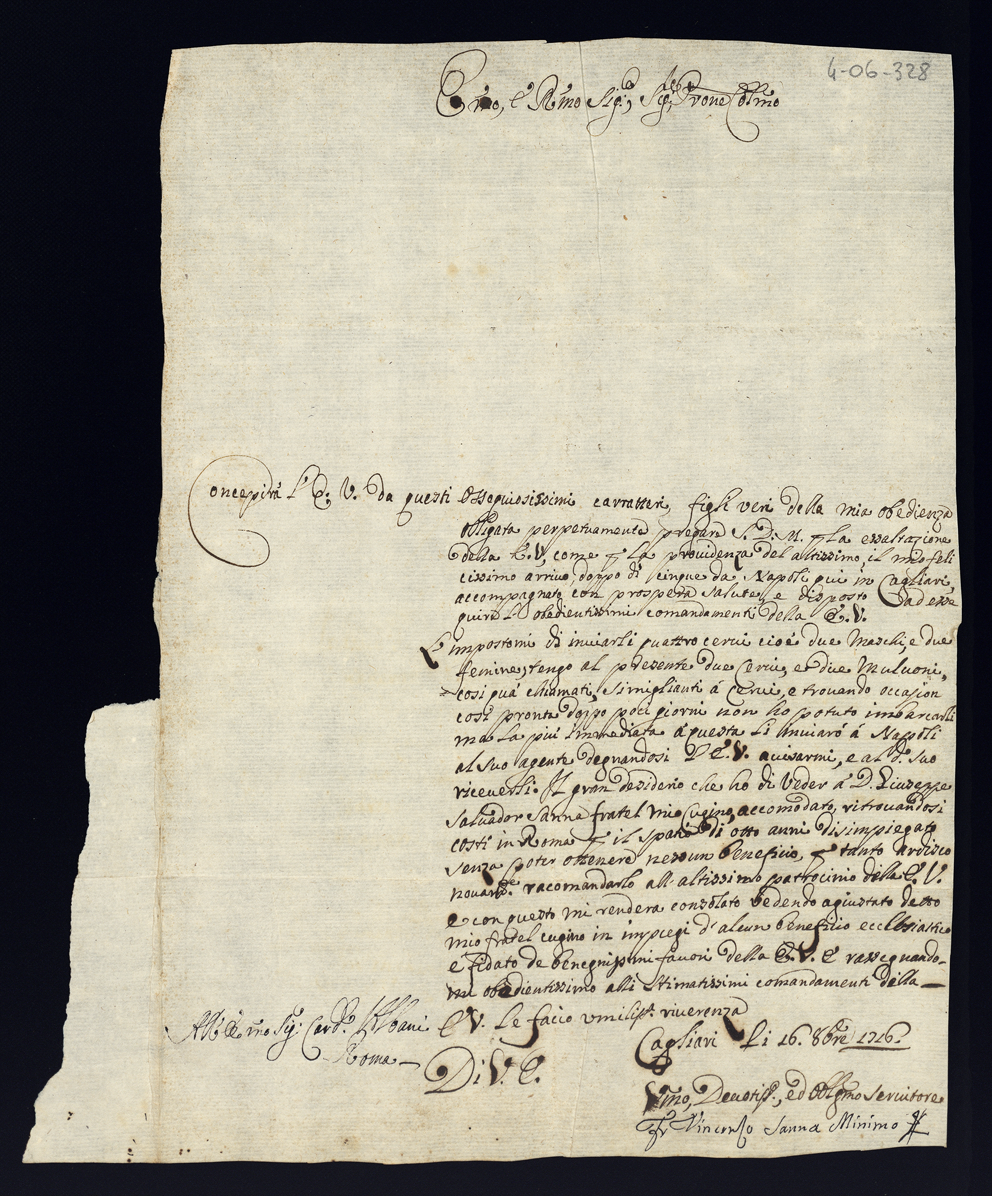 4-06-328
Em̃o, e Rm̃o Sig:r, Sig:r Prone Colmo
Concepirà l'E. V. da questi osseguiosissimi carratteri, figli veri della mia obedienza
obligata perpetuamente pregare S. D. M. per la essaltazione
della E. V, come per la providenza del altissimo, il mio feli
cissimo arrivo, doppo di cinque da Napoli qui in Cagliari,
accompagnato con prospera salute, e disposto ad esse
quire l' obedientissimi comandamenti della E. V.
L'impostomi di inviarli quattro cervi cioè due Maschi, e due
femine, tengo al presente due Cervie, e due Muluoni,
così quà chiamati, simiglianti á Cervi, e trovando occasion
così pronta doppo poci giorni non ho potuto imbarcarli
ma la piú immediata á questa li inviaró á Napoli
al suo agente degnandosi l'E. V. avisarmi, e al d.o suo
riceverli. Il gran desiderio che ho di veder á D. Giuseppe
Salvador Sanna fratel mio Cugino, accomodato, ritrovandosi
costi in Roma per il spatio di otto anni disimpiegato
senza poter ottenere nessun beneficio, per tanto ardisco
novam.te racomandarlo all' altissimo patrocinio della E. V.
e con questo mi rendera consolato vedendo agiustato detto
mio fratel cugino in impiegi d'alcun beneficio ecclesiastico
e fidato de benegnissimi favori della E. V. e rassegnando-
mi obedientissimo alli stimatissimi comandamenti della
E. V. le faccio umiliss.a riverenza
Cagliari li 16. 8bre 1716.
All' Em̃o Sig: Card.e Albani
Roma
Di V. E.
Um̃o, Devotiss.o, ed Obblgmo servitore
Fr Vincenso Sanna Minimo